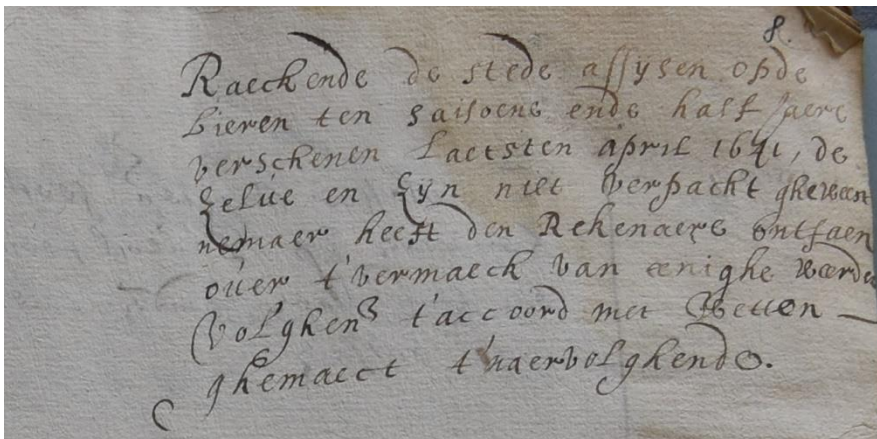 8.
Raeckende de stede assysen opde
bieren ten saisoene ende half jaere
verschenen laetsten april 1641, de
zelue en zyn niet verpacht gheweest
nemaer heeft den Rekenaere ontfaen
ouer t'vermaeck van eenighe weerden
volghens t'accoord met Wetten
ghemaect t'naervolghende.